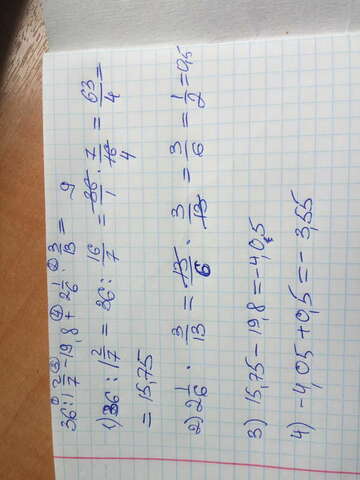 36:1 2/7 - 19,8 + 2 1/6 · 3/13 =
1) 36 : 1 2/7 = 36 : 16/7 = 36/1 · 7/16 = 63/4 =
= 15,75
2) 2 1/6 · 3/13 = 13/6 · 3/13 = 3/6 = 1/2 = 0,5
3) 15,75 - 19,8 = -4,05
4) -4,05 + 0,5 = - 3,55